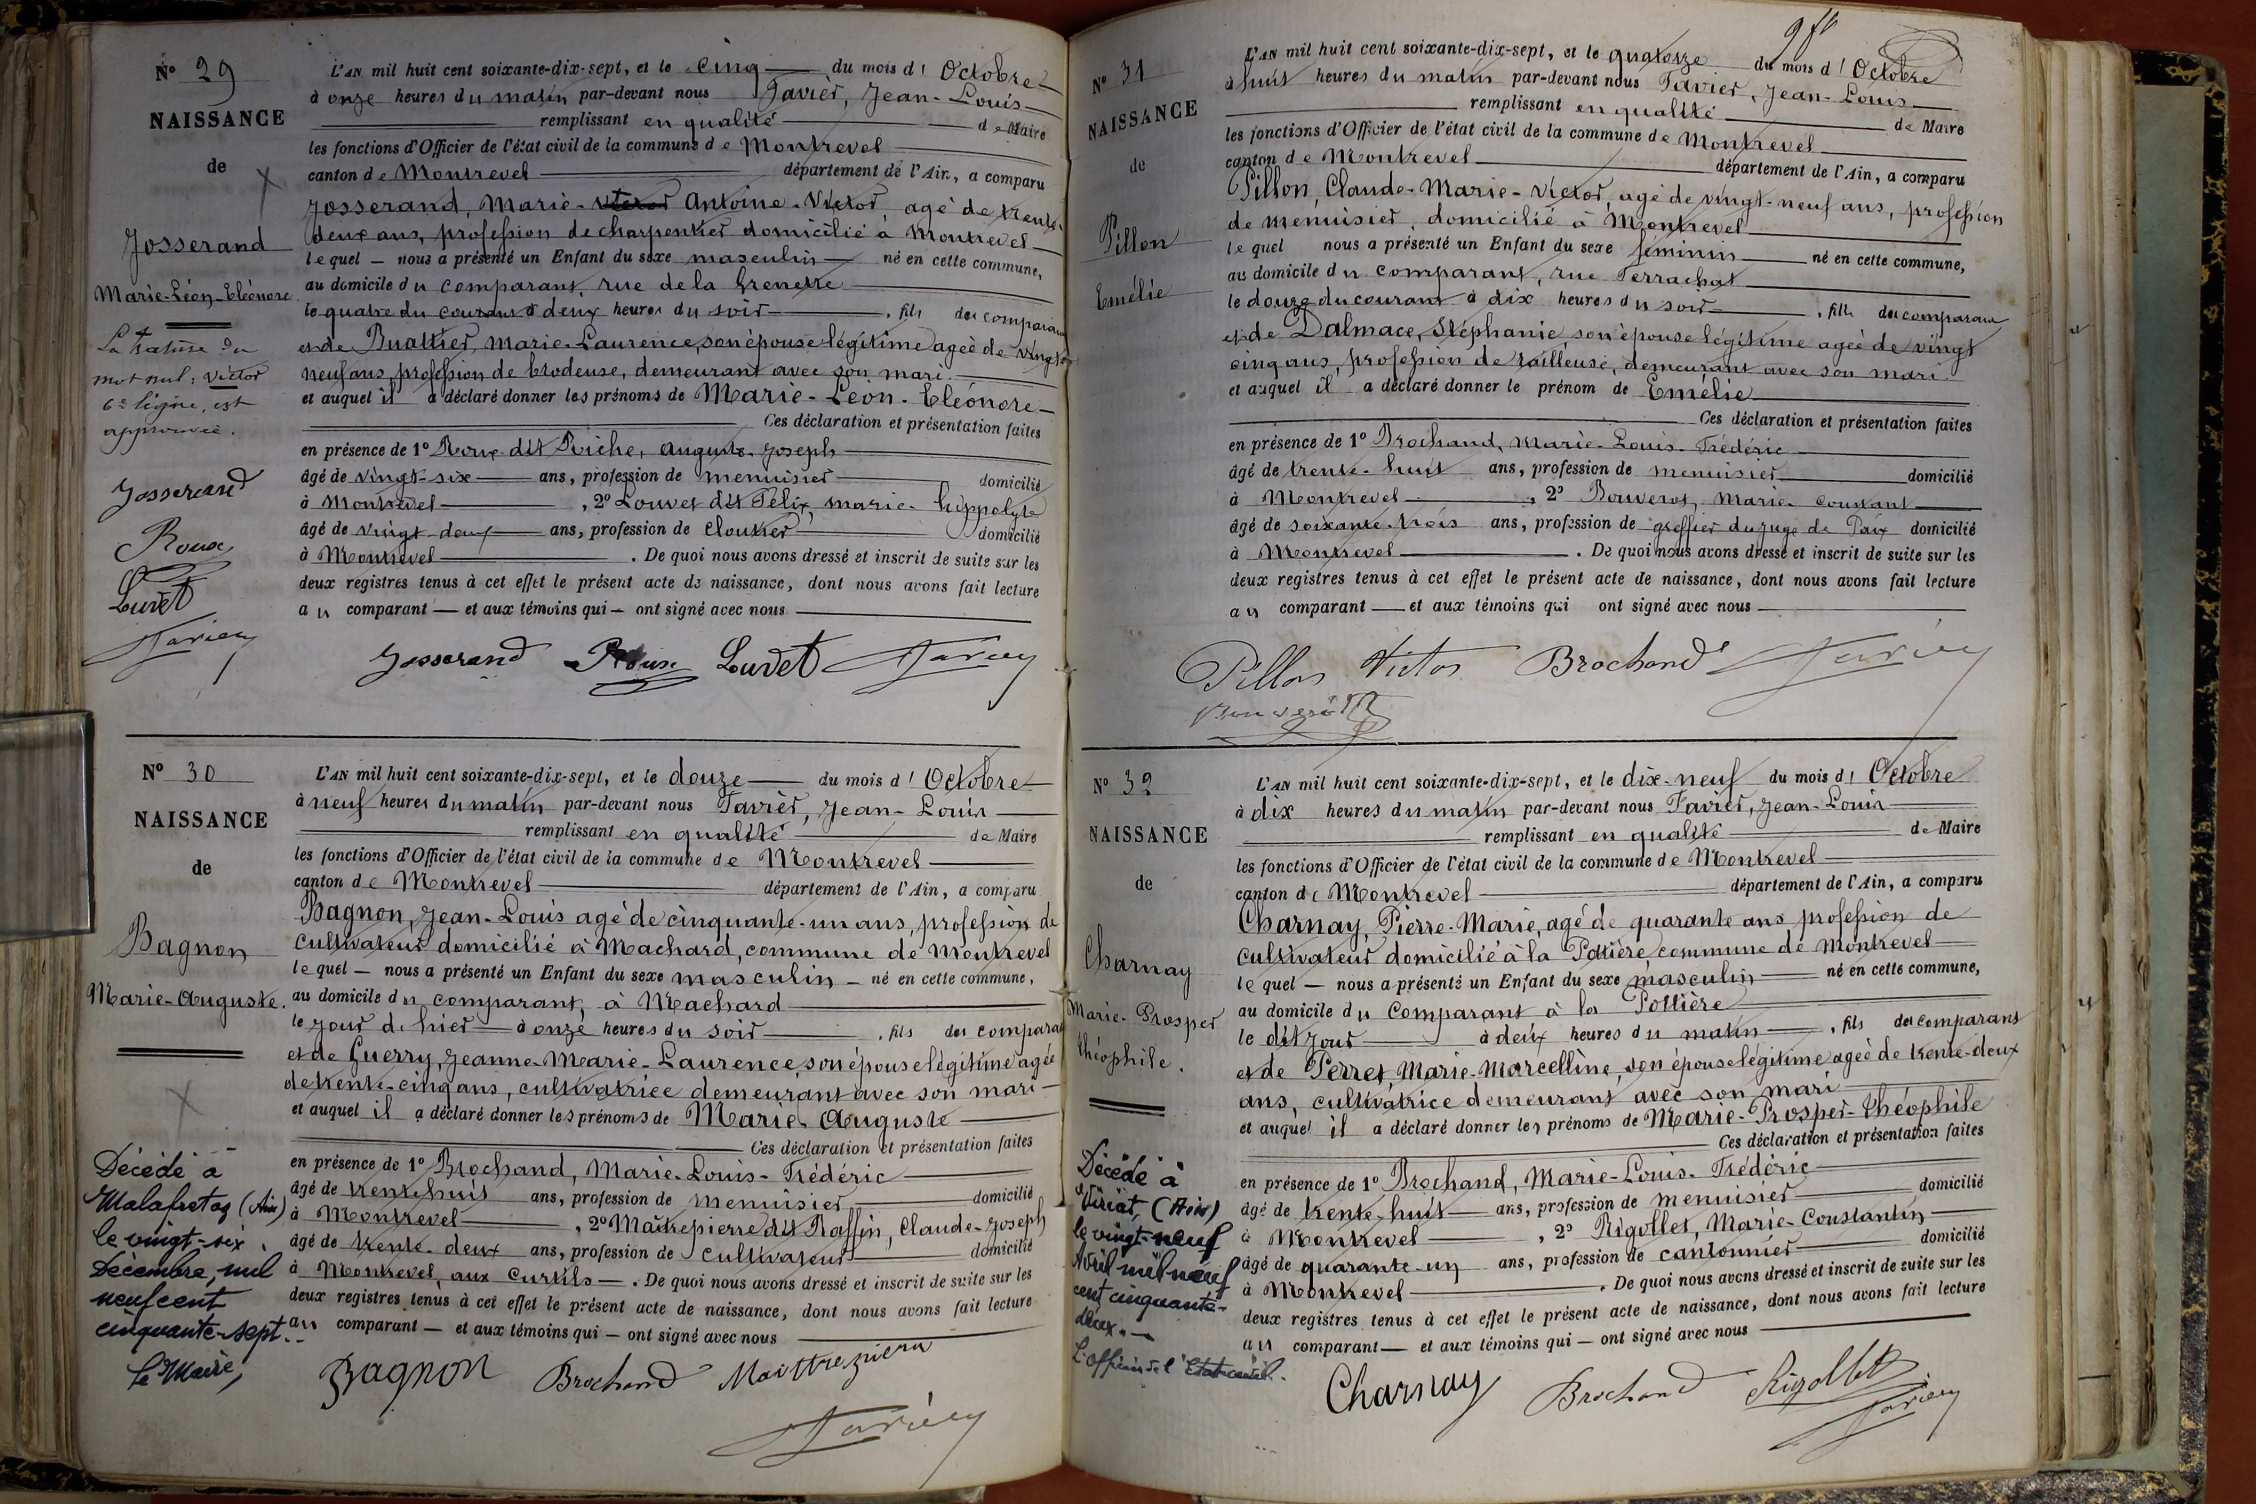 N° 29
NAISSANCE
de
Josserand
Marie-Léon-Eléonore
La rature du
mot nul : Victor
6e ligne, est
approuvée.
Josserand
Roux
Luvet
Favier
L'AN mil huit cent soixante-dix-sept, et le cinq du mois d' Octobre
à onze heures du matin par-devant nous Favier, Jean-Louis
remplissant en qualité de Maire
les fonctions d'Officier de l'état civil de la commune de Montrevel
canton de Montrevel département de l'Ain, a comparu
Josserand, Marie-Victor Antoine-Victor, agé de trente-
deux ans, profession de charpentier domicilié à Montrevel
lequel nous a présenté un Enfant du sexe masculin né en cette commune,
au domicile du comparant, rue de la Grenette
le quatre du courant à deux heures du soir, fils des comparant
et de Buattier, Marie-Laurence, son épouse légitime agée de vingt-
neuf ans, profession de brodeuse, demeurant avec son mari.
et auquel il a déclaré donner les prénoms de Marie-Léon-Eléonore
Ces déclaration et présentation faites
en présence de 1° Roux dit Riche, Auguste-Joseph
âgé de vingt-six ans, profession de menuisier domicilié
à Montrevel, 2° Louvet dit Félix, Marie-hippolyte
âgé de vingt-deux ans, profession de cloutier domicilié
à Montrevel. De quoi nous avons dressé et inscrit de suite sur les
deux registres tenus à cet effet le présent acte de naissance, dont nous avons fait lecture
au comparant et aux témoins qui ont signé avec nous
Josserand Roux Luvet Favier
N° 30
NAISSANCE
de
Bagnon
Marie-Auguste.
Décédé à
Malafretaz (Ain)
le vingt-six
Décembre, mil
neuf cent
cinquante-sept.
Le Maire,
L'AN mil huit cent soixante-dix-sept, et le douze du mois d' Octobre
à neuf heures du matin par-devant nous Favier, Jean-Louis
remplissant en qualité de Maire
les fonctions d'Officier de l'état civil de la commune de Montrevel
canton de Montrevel département de l'Ain, a comparu
Bagnon, Jean-Louis agé de cinquante-un ans, profession de
cultivateur domicilié à Machard, commune de Montrevel
lequel nous a présenté un Enfant du sexe masculin né en cette commune,
au domicile du comparant, à Machard
le jour de hier à onze heures du soir, fils des comparant
et de Guerry, Jeanne-Marie-Laurence, son épouse légitime agée
de trente-cinq ans, cultivatrice demeurant avec son mari
et auquel il a déclaré donner les prénoms de Marie Auguste
Ces déclaration et présentation faites
en présence de 1° Brochand, Marie-Louis-Frédéric
âgé de trente-huit ans, profession de menuisier domicilié
à Montrevel, 2° Maîtrepierre dit Raffin, Claude-Joseph
âgé de trente-deux ans, profession de cultivateur domicilié
à Montrevel, aux Curtils. De quoi nous avons dressé et inscrit de suite sur les
deux registres tenus à cet effet le présent acte de naissance, dont nous avons fait lecture
au comparant et aux témoins qui ont signé avec nous
Bagnon Brochand Maittrepierre
Favier
N° 31
NAISSANCE
de
Pillon
Emélie
L'AN mil huit cent soixante-dix-sept, et le quatorze du mois d' Octobre
à huit heures du matin par-devant nous Favier, Jean-Louis
remplissant en qualité de Maire
les fonctions d'Officier de l'état civil de la commune de Montrevel
canton de Montrevel département de l'Ain, a comparu
Pillon, Claude-Marie-Victor, agé de vingt-neuf ans, profession
de menuisier, domicilié à Montrevel
lequel nous a présenté un Enfant du sexe féminin né en cette commune,
au domicile du comparant, rue Ferrachat
le douze du courant à dix heures du soir, fille des comparant
et de Dalmace, Stéphanie, son épouse légitime agée de vingt
cinq ans, profession de tailleuse, demeurant avec son mari.
et auquel il a déclaré donner le prénom de Emélie
Ces déclaration et présentation faites
en présence de 1° Brochand, Marie-Louis-Frédéric
âgé de trente-huit ans, profession de menuisier domicilié
à Montrevel, 2° Bouverot, Marie-Constant
âgé de soixante-trois ans, profession de greffier du juge de Paix domicilié
à Montrevel. De quoi nous avons dressé et inscrit de suite sur les
deux registres tenus à cet effet le présent acte de naissance, dont nous avons fait lecture
au comparant et aux témoins qui ont signé avec nous
Pillon Victor Brochand Favier
Bouverot
N° 32
NAISSANCE
de
Charnay
Marie-Prosper
théophile.
Décédé à
Viriat, (Ain)
le vingt-neuf
Avril mil neuf
cent cinquante-
deux.
L'officier de l'Etat civil.
L'AN mil huit cent soixante-dix-sept, et le dix-neuf du mois d' Octobre
à dix heures du matin par-devant nous Favier, Jean-Louis
remplissant en qualité de Maire
les fonctions d'Officier de l'état civil de la commune de Montrevel
canton de Montrevel département de l'Ain, a comparu
Charnay, Pierre-Marie, agé de quarante ans profession de
cultivateur domicilié à la Potière, commune de Montrevel
lequel nous a présenté un Enfant du sexe masculin né en cette commune,
au domicile du comparant à la Pottière
le dit jour à deux heures du matin, fils des comparant
et de Perret, Marie-Marcelline, son épouse légitime agée de trente-deux
ans, cultivatrice demeurant avec son mari
et auquel il a déclaré donner les prénoms de Marie-Prosper-théophile
Ces déclaration et présentation faites
en présence de 1° Brochand, Marie-Louis-Frédéric
âgé de trente-huit ans, profession de menuisier domicilié
à Montrevel, 2° Rigollet, Marie-Constantin
âgé de quarante-un ans, profession de cantonnier domicilié
à Montrevel. De quoi nous avons dressé et inscrit de suite sur les
deux registres tenus à cet effet le présent acte de naissance, dont nous avons fait lecture
au comparant et aux témoins qui ont signé avec nous
Charnay Brochand Rigollet
Favier